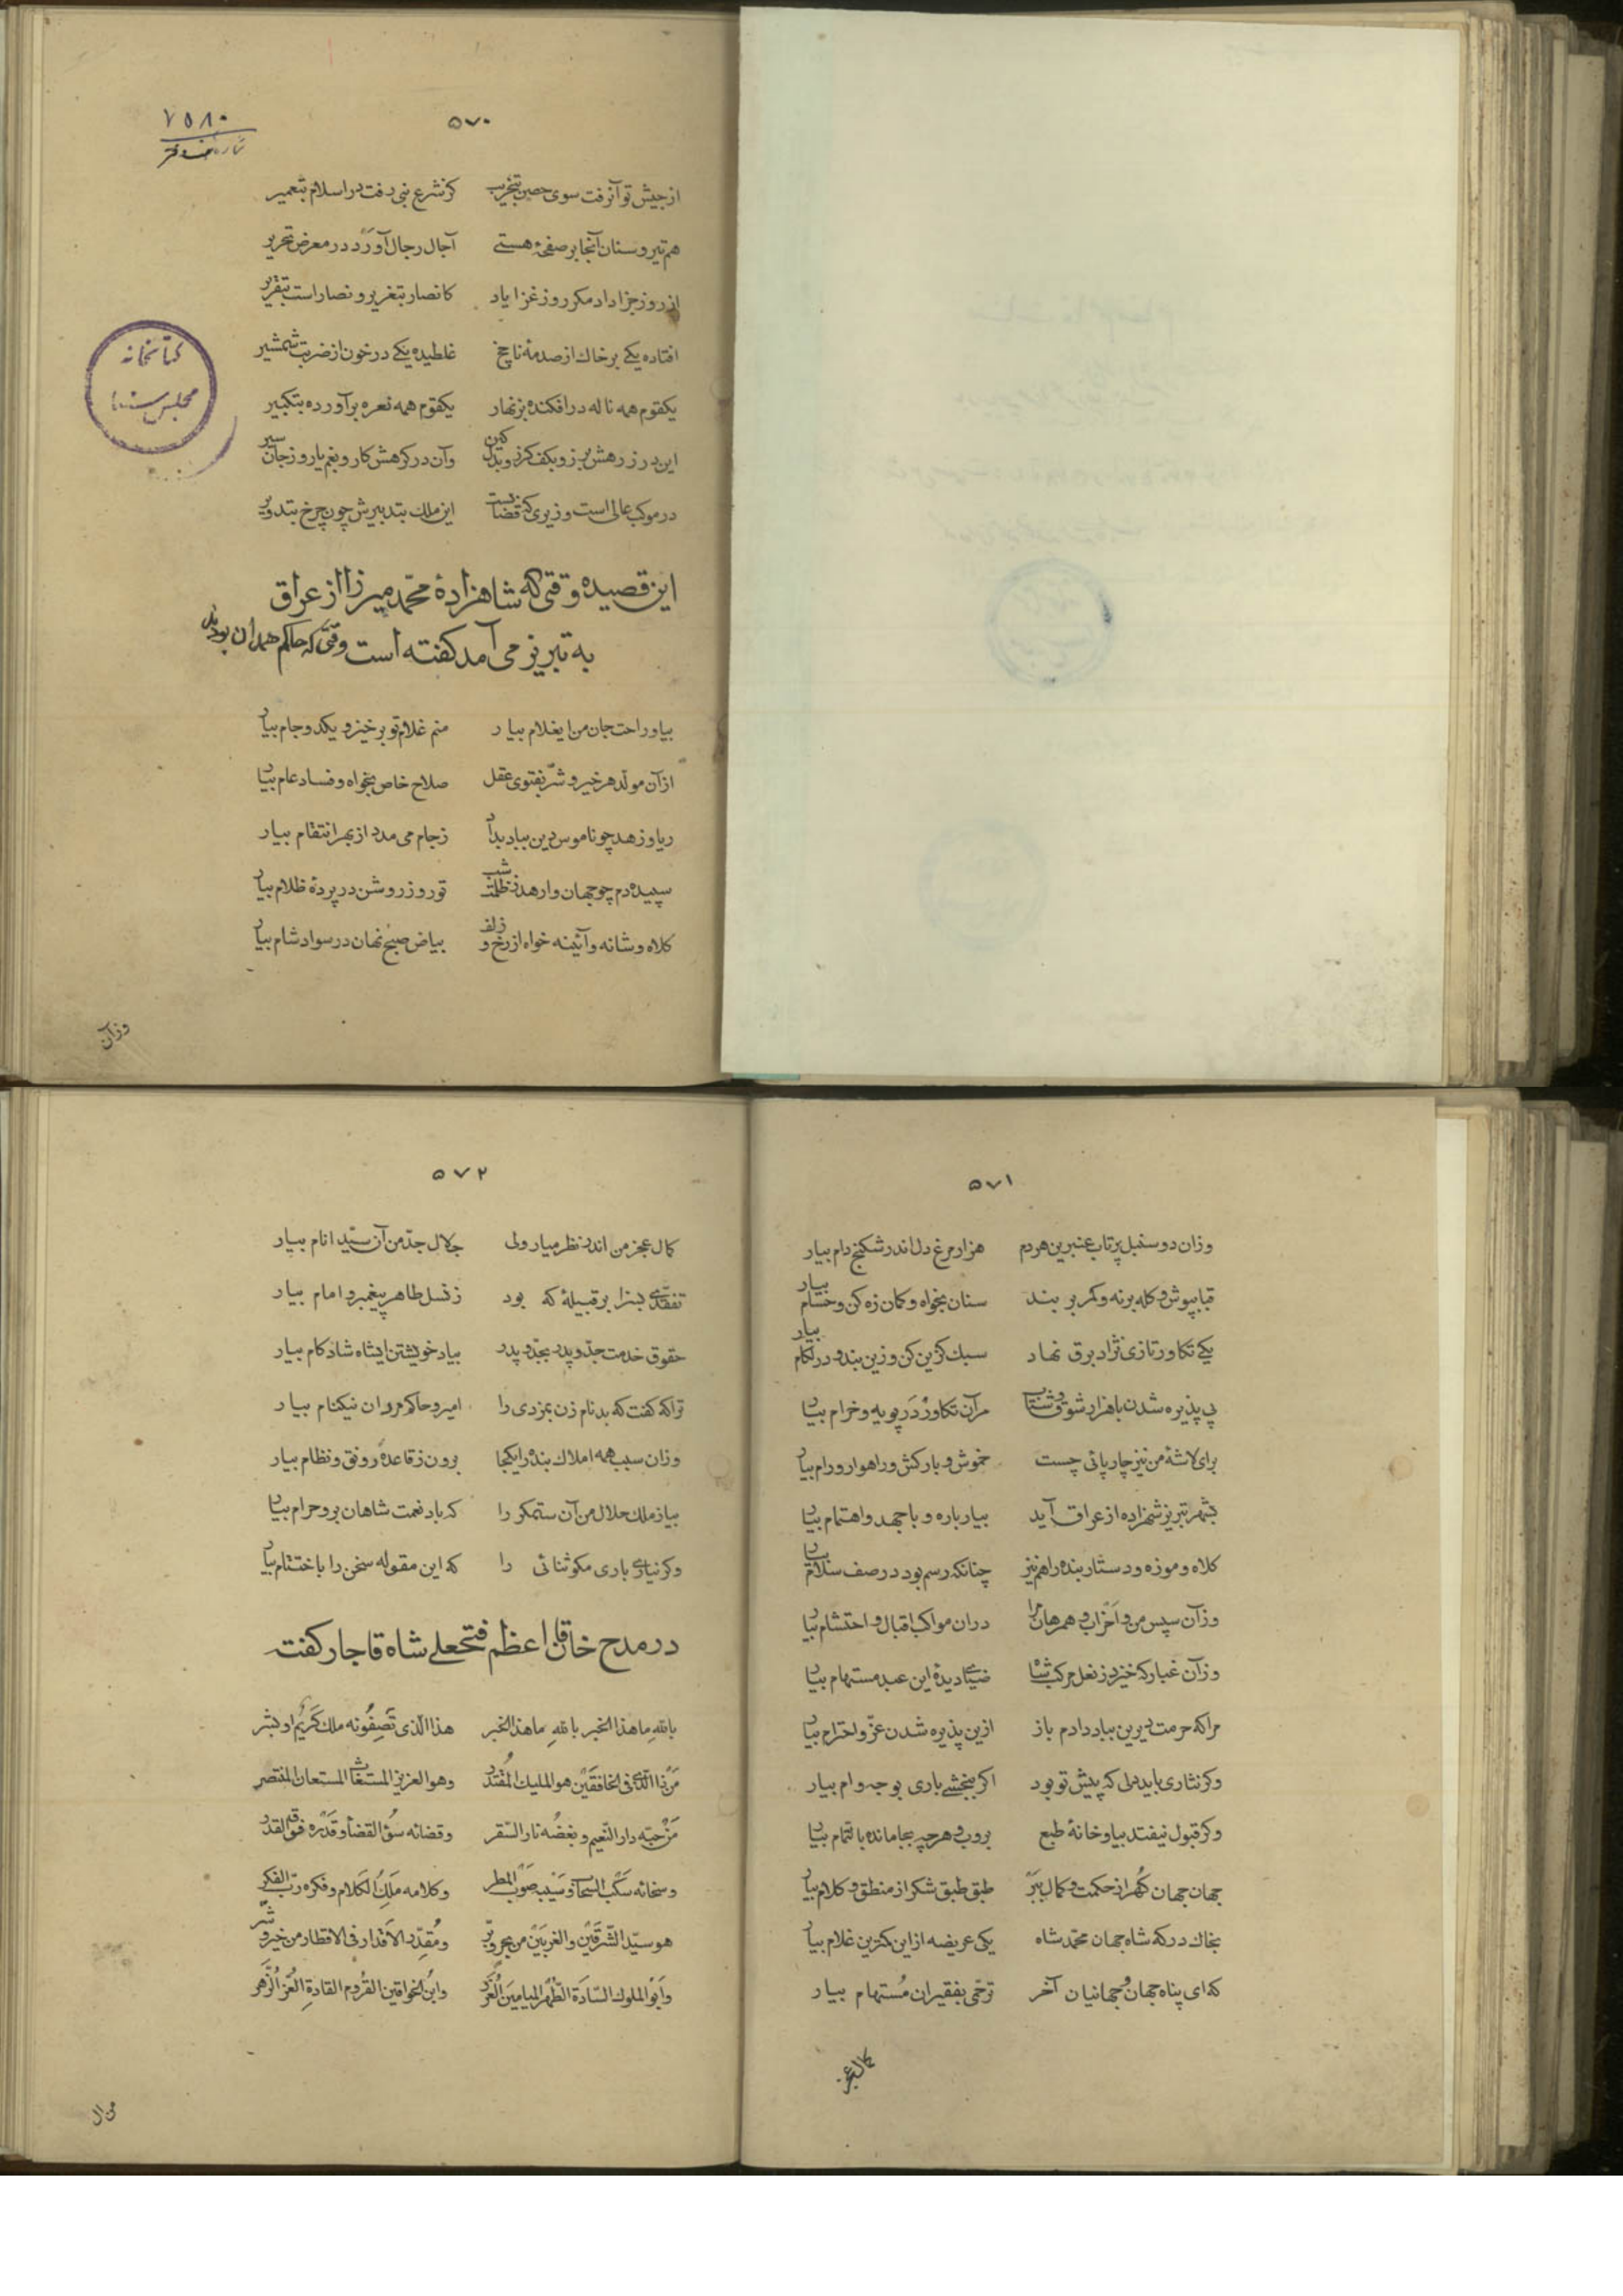 ۵۷۰
۷۵۸۰
شماره دفتر
از جیش تو آنرفت سوی حصن بتخریب کز شرع نبی رفت در اسلام بتعمیر
هم تیر و سنان آنجا بر صفحهٔ هستے آجال رجال آورَد در معرض تحریر
از روز جزا داد مکر روز غزا یاد کانصار بتغریر و نصار است بتقریر
افتاده یکے بر خاک از صدمهٔ ناچخ غلطیده یکے در خون از ضربت شمشیر
یکقوم همه ناله در افکنده بزنهار یکقوم همه نعره برآورده بتکبیر
این در زرهش برز و بکف کرز و بدل کین وآن در کرهش کار و بغم یار و ز جان سیر
در موکب عالی است وزیری که قضا نیست این ملک بتدبیرش چون چرخ بتدویر
کتابخانه
مجلس سنا
این قصیده وقتی که شاهزادهٔ محمّد میرزا از عراق
به تبریز می آمد گفته است وقتی که حاکم همدان بودند
بیا و راحت جان من ایغلام بیار منم غلام تو برخیز و یکدو جام بیار
از آن مولّد هر خیر و شرّ بفتوی عقل صلاح خاص بخواه و فساد عام بیار
ریا و زهد چو ناموس دین بباد بداد ز جام می مدد از بهر انتقام بیار
سپیده دم چو جهان وارهد ز ظلمت شب تو روز روشن در پردهٔ ظلام بیار
کلاه و شانه و آئینه خواه از رخ و زلف بیاض صبح نهان در سواد شام بیار
وزآن
۵۷۱
وزان دو سنبل پرتاب عنبرین هر دم هزار مرغ دل اندر شکنج دام بیار
قبا بپوش و کله برنه و کمر بر بند سنان بخواه و کمان زه کن و حسام بیار
یکے تکاور تازی نژاد برق نهاد سبک گزین کن و زین بند و در لگام بیار
پی پذیره شدن با هزار شوق و شتاب مر آن تکاور دَر پویه و خرام بیار
برای لاشهٔ من نیز چارپائی چست خموش و بارکش و راهوار و رام بیار
بشهر تبریز شهزاده از عراق آید بیار باره و با جهد و اهتمام بیار
کلاه و موزه و دستار بنده را هم نیز چنانکه رسم بود در صف سلام بیار
وزآن سپس من و احزاب و همرهان مرا در ان مواکب اقبال و احتشام بیار
وزآن غبار که خیزد ز نعل مرکب شاه ضیاے دیدهٔ این عبد مستهام بیار
مرا که حرمت دیرین بباد دادم باز ازین پذیره شدن عزّ و احترام بیار
وکر نثاری باید ولی که پیش تو بود اکر ببخشے باری بوجه وام بیار
وکر قبول نیفتد بیا و خانهٔ طبع بروب و هرچه بجا مانده با تمام بیار
جهان جهان گهر از حکمت و کمال ببر طبق طبق شکر از منطق و کلام بیار
بخاک درکه شاه جهان محمّد شاه یکی عریضه از این کمترین غلام بیار
که ای پناه جهان و جهانیان آخر ترحّمی بفقیران مُستهام بیار
کمال عجز
۵۷۲
کمال عجز من اندر نظر میار ولی جلال جدّ من آن سیّد انام بیار
تفقّدے بسزا بر قبیلهٔ که بود ز نسل طاهر پیغمبر و امام بیار
حقوق خدمت جدّ و پدر بجدّ و پدر بیاد خویشتن ایشاه شادکام بیار
تراکه کفت که بدنام زن بمزدی را امیر و حاکم مردان نیکنام بیار
وزان سبب همه املاک بنده را یکجا برون ز قاعدهٔ رونق و نظام بیار
بیا ز ملک حلال من آن ستمکر را که باد نعمت شاهان برو حرام بیار
وکر نیارے باری مکو ثنائی را که این مقوله سخن را باختتام بیار
در مدح خاقان اعظم فتحعلے شاه قاجار کفت
بالله ما هذا الخبر بالله ما هذا الخبر هذا الّذی تَصِفُونه ملک کَریمٌ او بشر
مَن ذا الّذی فی الخافقَین هو الملیک المُقتدر وهو العزیز المستغاث المستعان المنتصر
مَن حبّه دار النّعیم و بغضُه نار السّقر و قضائه سؤ القضاء و قَدَره فوق القدر
و سخائه سَکْب السّحاب و سَیبه صَوْب المطر و کلامه مَلِکُ الکَلام و فکره ربّ الفکر
هو سیّد الشّرقَین والغربَین من بحر و بر و مُقدّر الاَقدار فی الاقطار من خیر و شر
وَابو الملوک السّادَة الطّهر المیامینَ الغُرَر وابنُ الخواقین القُروم القادة العُزّ الزُهر